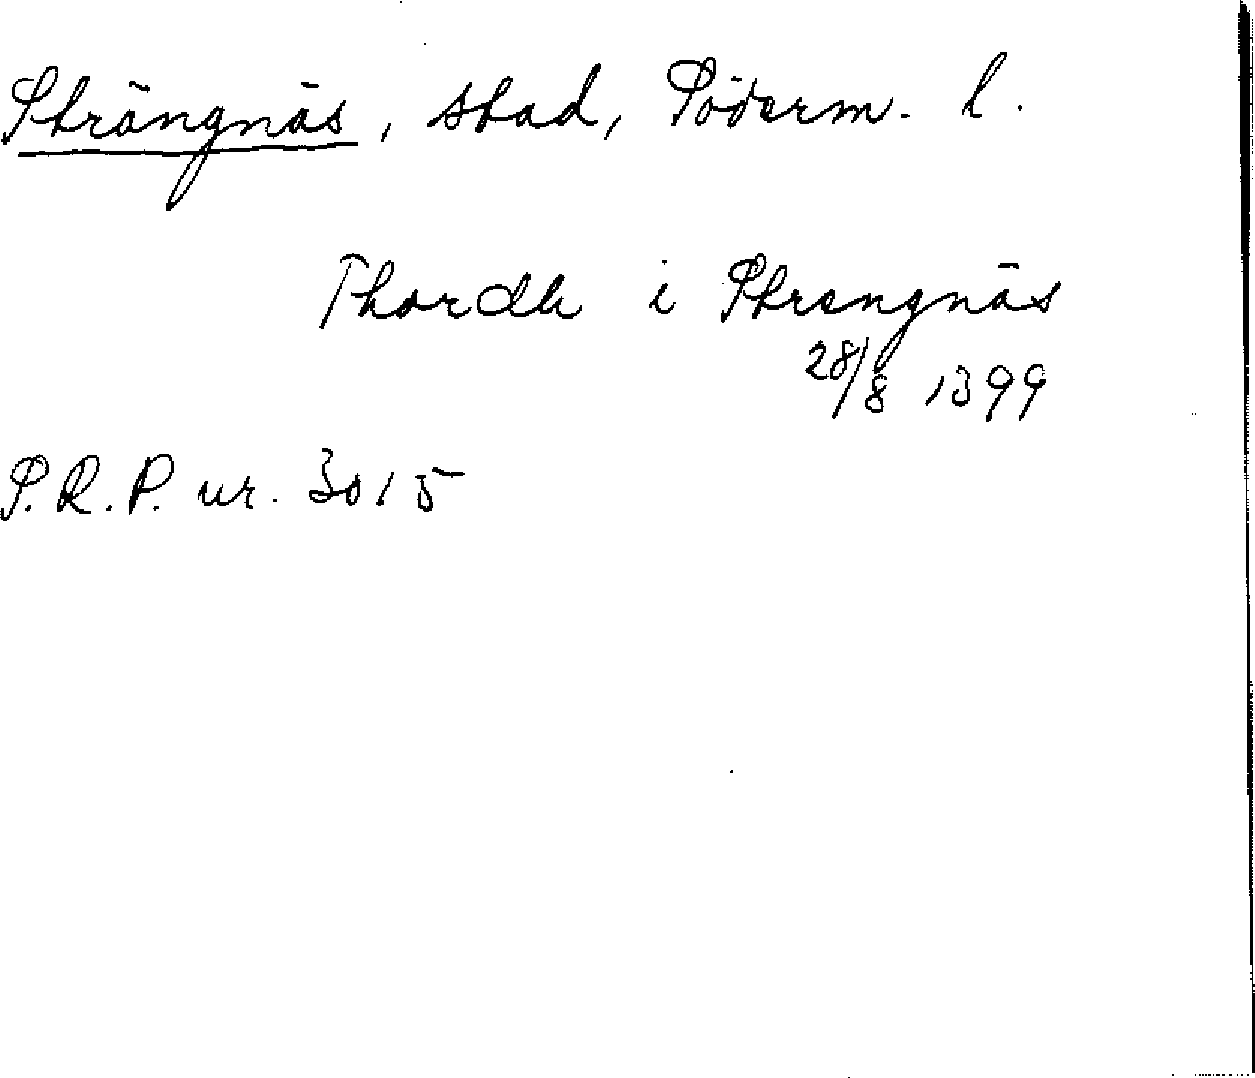 Strängnäs, stad, Söderm. l.
Thordh i Strengnäs
28/8 1399
S.R.P. nr. 3015